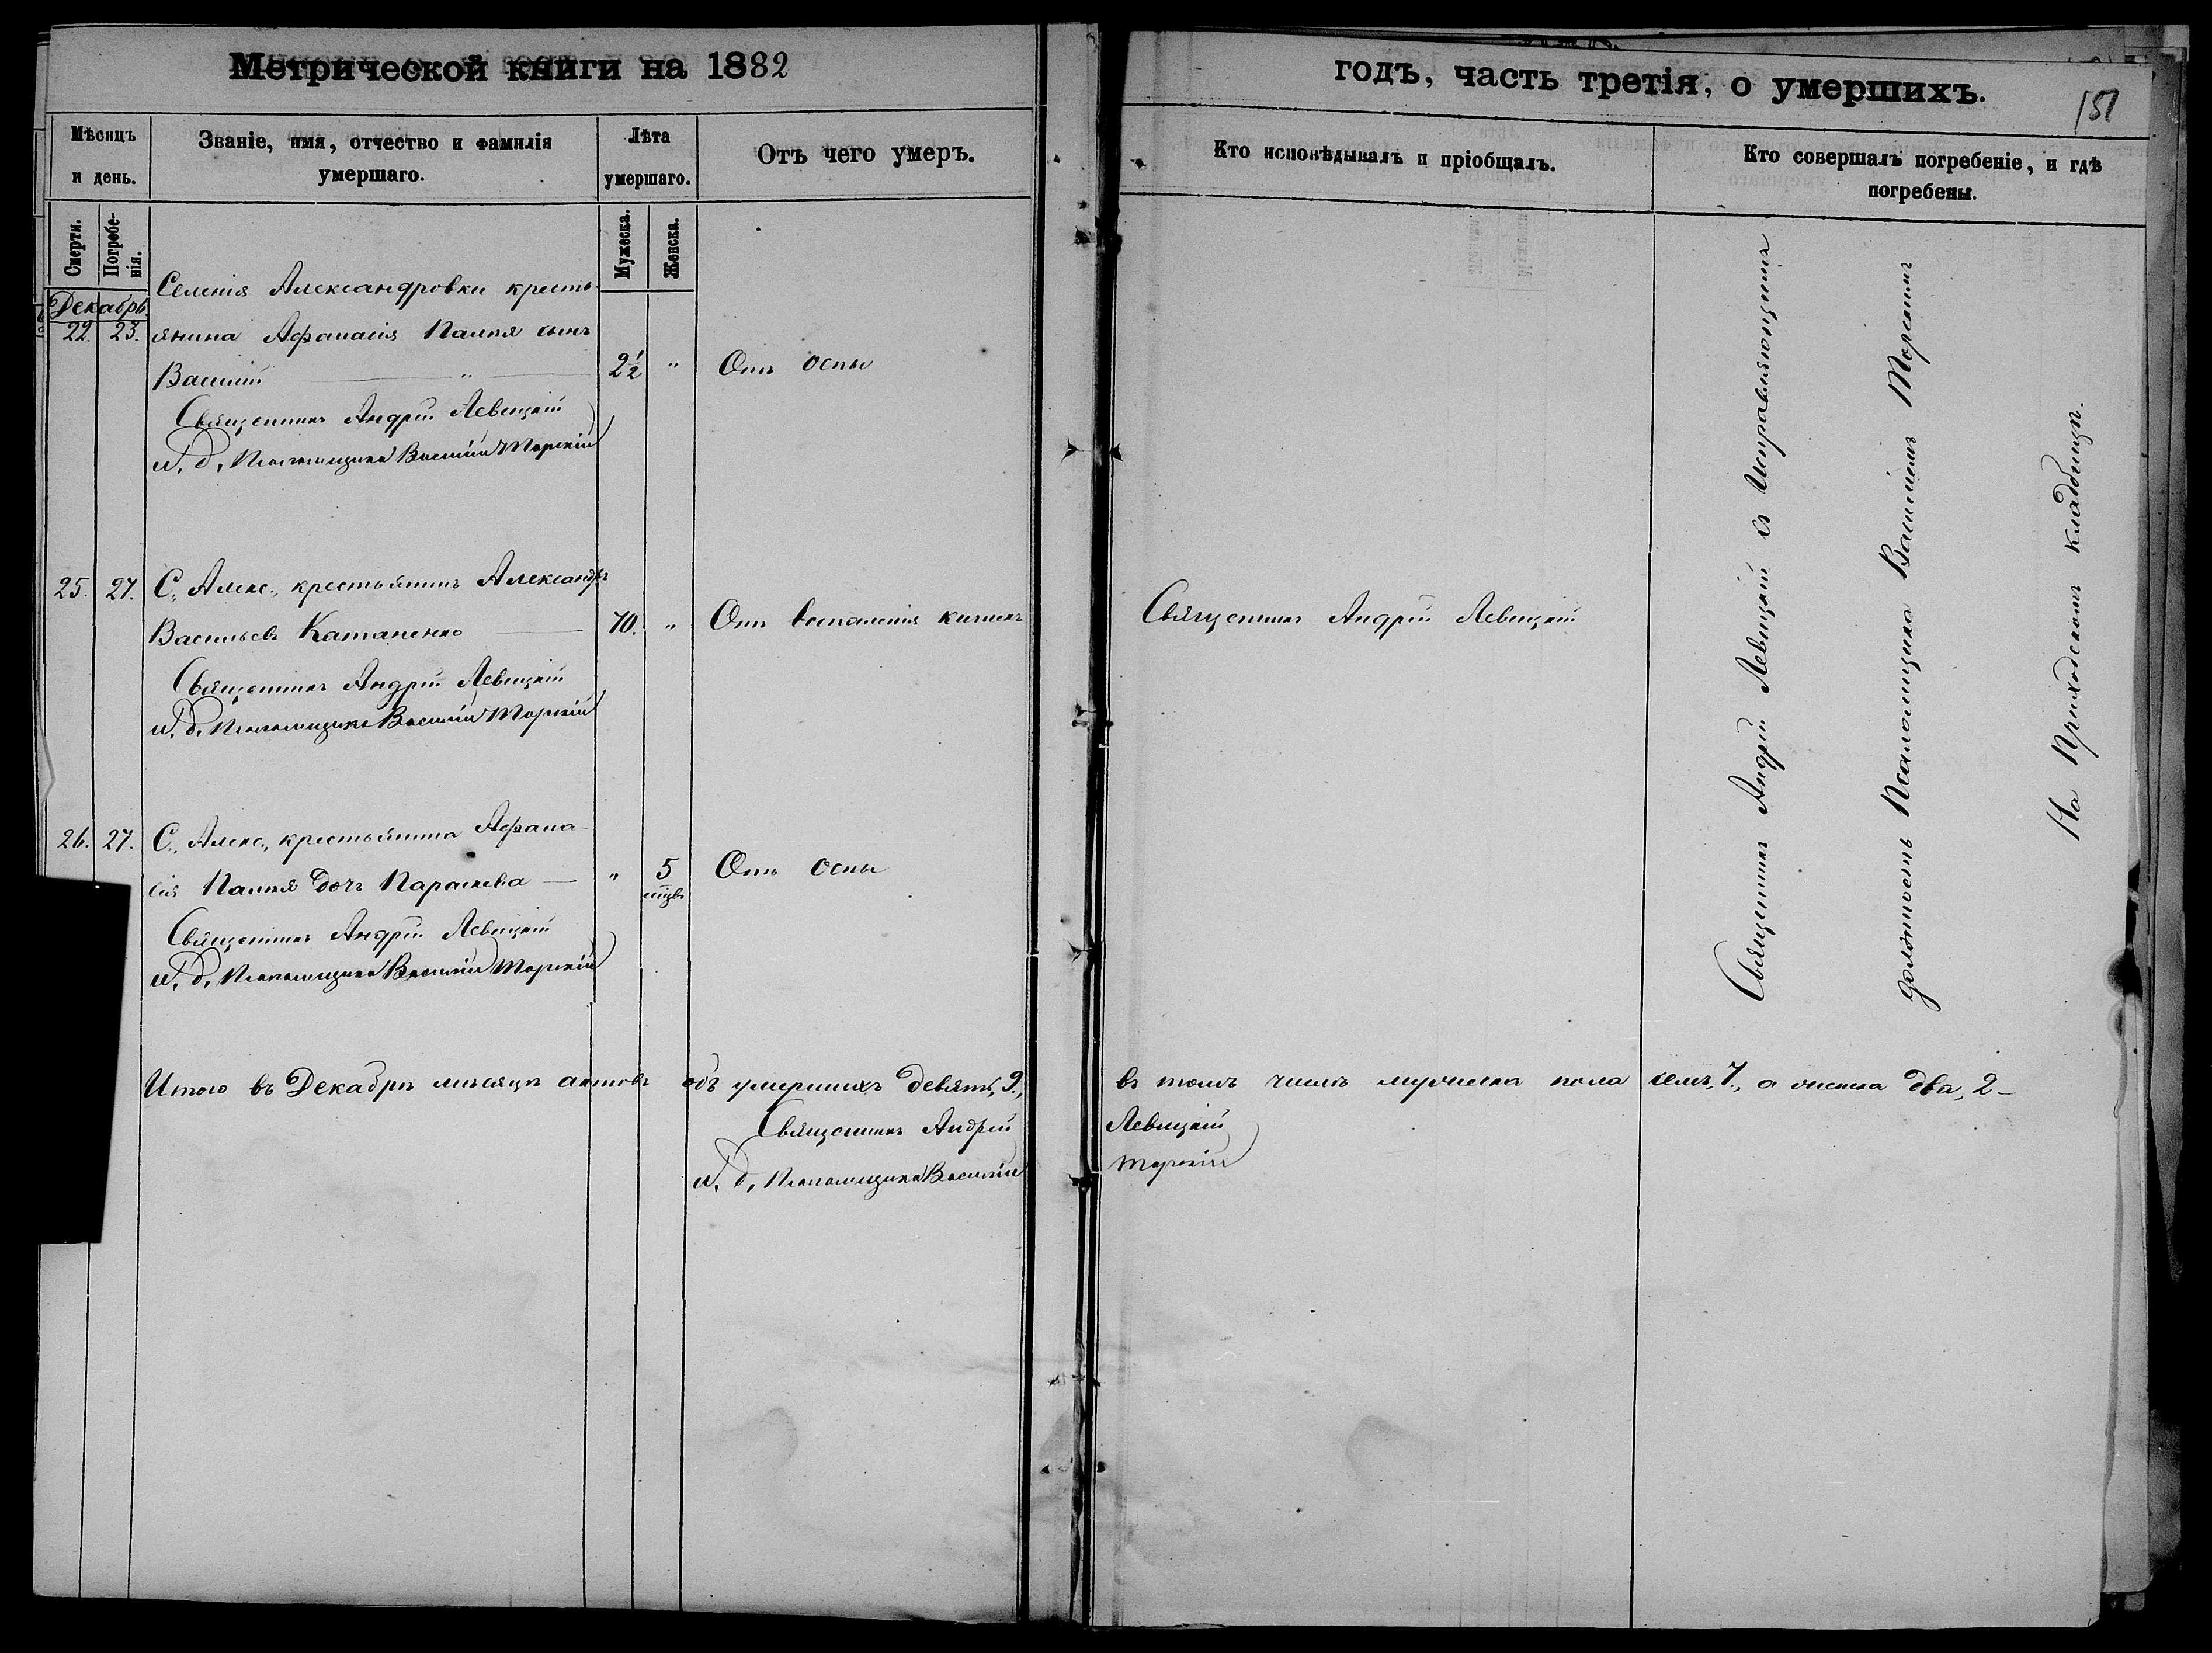 Метрической книги на 1882
годъ, часть третія, о умершихъ.
151
Мѣсяцъ и день.
Званіе, имя, отчество и фамилія умершаго.
Лѣта умершаго.
Отъ чего умеръ.
Кто исповѣдывалъ и пріобщалъ.
Кто совершалъ погребеніе, и гдѣ погребены.
Смерти.
Погребенія.
Мужеска.
Женска.
Декабрь
22. 23.
Селенія Александровки кресть-
янина Афанасія Палія сынъ
Василій — " — 2½ " Отъ оспы
Священникъ Андрей Левицкій
и. д. Псаломщика Василій Торскій
25. 27. С. Алекс. крестьянинъ Александръ
Васильевъ Катаненко — 70. " Отъ воспаленія кишекъ
Священникъ Андрей Левицкій
Священникъ Андрей Левицкій
и. д. Псаломщика Василій Торскій
26. 27. С. Алекс. крестьянина Афана-
сія Палія дочь Параскева — " 5 мцвъ Отъ оспы
Священникъ Андрей Левицкій
и. д. Псаломщика Василій Торскій
Священникъ Андрей Левицкій съ Исправляющимъ
должность Псаломщика Василіемъ Торскимъ
На Приходскомъ кладбищѣ.
Итого въ Декабрѣ мѣсяцѣ актовъ объ умершихъ девять, 9., въ томъ числѣ мужеска пола семь, 7., а женска два, 2 —
Священникъ Андрей Левицкій
и. д. Псаломщика Василій Торскій